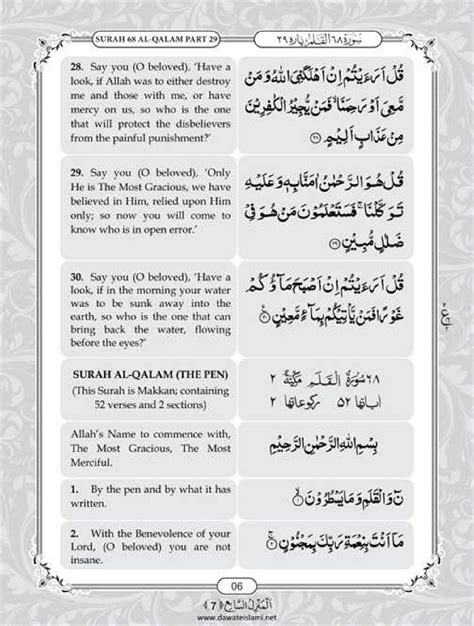 SURAH 68 AL-QALAM PART 29
سُوْرَةُ ٦٨ الْقَلَم / پاره ٢٩
28. Say you (O beloved), ‘Have a
look, if Allah was to either destroy
me and those with me, or have
mercy on us, so who is the one
that will protect the disbelievers
from the painful punishment?’
قُلْ اَرَءَيْتُمْ اِنْ اَهْلَكَنِيَ اللّٰهُ وَمَنْ
مَّعِيَ اَوْ رَحِمَنَا ۙ فَمَنْ يُّجِيْرُ الْكٰفِرِيْنَ
مِنْ عَذَابٍ اَلِيْمٍ ﴿٢٨﴾
29. Say you (O beloved), ‘Only
He is The Most Gracious, we have
believed in Him, relied upon Him
only; so now you will come to
know who is in open error.’
قُلْ هُوَ الرَّحْمٰنُ اٰمَنَّا بِهٖ وَعَلَيْهِ
تَوَكَّلْنَا ۚ فَسَتَعْلَمُوْنَ مَنْ هُوَ فِيْ
ضَلٰلٍ مُّبِيْنٍ ﴿٢٩﴾
30. Say you (O beloved), ‘Have a
look, if in the morning your water
was to be sunk away into the
earth, so who is the one that can
bring back the water, flowing
before the eyes?’
قُلْ اَرَءَيْتُمْ اِنْ اَصْبَحَ مَآؤُكُمْ
غَوْرًا فَمَنْ يَّاْتِيْكُمْ بِمَآءٍ مَّعِيْنٍ ﴿٣٠﴾
SURAH AL-QALAM (THE PEN)
(This Surah is Makkan; containing
52 verses and 2 sections)
٦٨ سُوْرَةُ الْقَلَمِ مَكِّيَّةٌ ٢
اياتها ٥٢ ركوعاتها ٢
Allah’s Name to commence with,
The Most Gracious, The Most
Merciful.
بِسْمِ اللّٰهِ الرَّحْمٰنِ الرَّحِيْمِ
1. By the pen and by what it has
written.
نٓ وَالْقَلَمِ وَمَا يَسْطُرُوْنَ ﴿١﴾
2. With the Benevolence of your
Lord, (O beloved) you are not
insane.
مَآ اَنْتَ بِنِعْمَةِ رَبِّكَ بِمَجْنُوْنٍ ﴿٢﴾
06
اَلْمَنْزِلُ السَّابِع ﴿7﴾
www.dawateislami.net